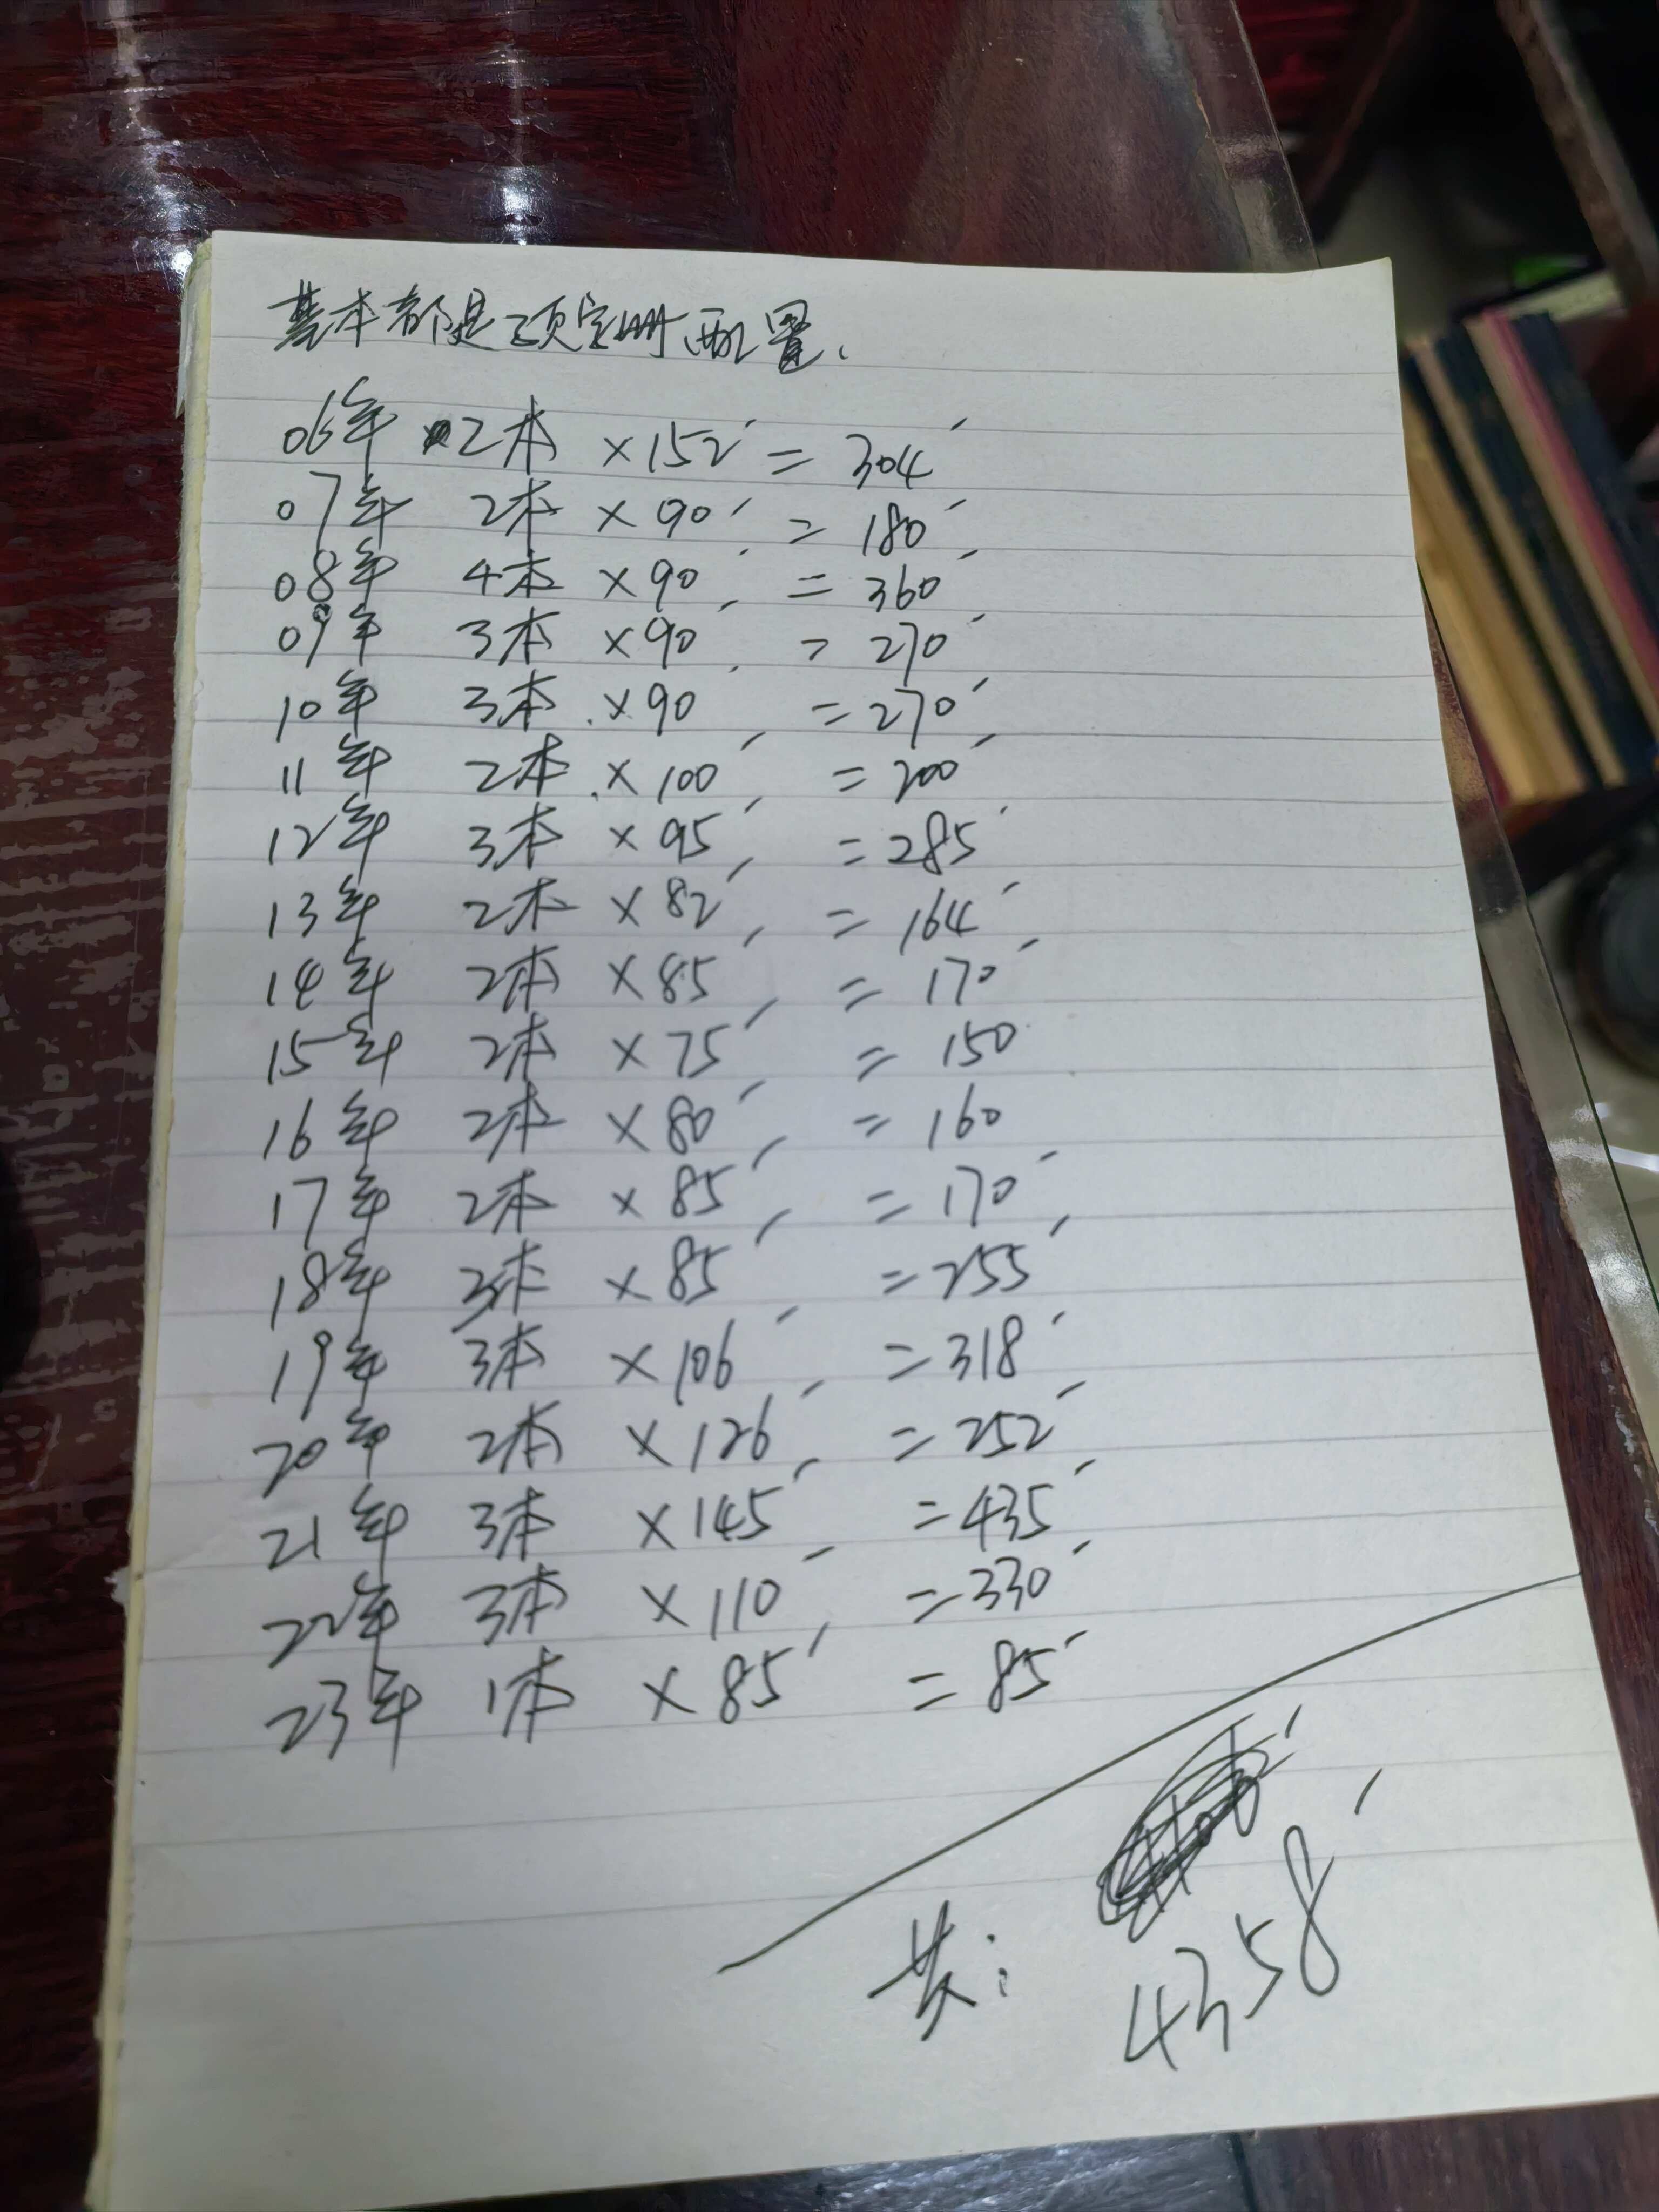 基本都是预定册配置、
06年 2本 ×152 = 304
07年 2本 ×90 = 180
08年 4本 ×90 = 360
09年 3本 ×90 = 270
10年 3本 ×90 = 270
11年 2本 ×100 = 200
12年 3本 ×95 = 285
13年 2本 ×82 = 164
14年 2本 ×85 = 170
15年 2本 ×75 = 150
16年 2本 ×80 = 160
17年 2本 ×85 = 170
18年 3本 ×85 = 255
19年 3本 ×106 = 318
20年 2本 ×126 = 252
21年 3本 ×145 = 435
22年 3本 ×110 = 330
23年 1本 ×85 = 85
共: 4358